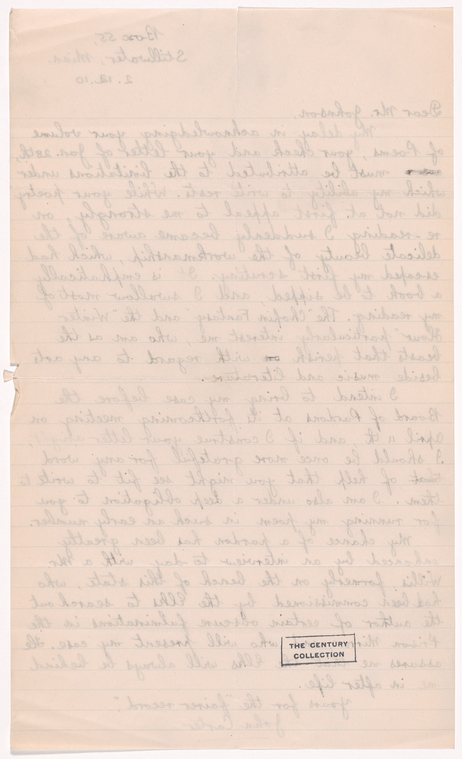 Box 55,
Stillwater, Minn.
2.12.10
Dear Mr. Johnson
My delay in acknowledging your volume
of Poems, your check and your letter of Jan. 28th,
must be attributed to the limitations under
which my ability to write rests. While your poetry
did not at first appeal to me strongly, on
re-reading I suddenly became aware of the
delicate beauty of the workmanship, which had
escaped my first scrutiny. It is emphatically
a book to be sipped, and I swallow most of
my reading. The "Chopin Fantasy" and the "Winter
Hour" particularly interest me, who am as the
beasts that perish with regard to any arts
beside music and literature.
I intend to bring my case before the
Board of Pardons at its forthcoming meeting on
April 11th, and if I construe your letter
I should be once more grateful for any word
of help that you might see fit to write to
them. I am also under a deep obligation to you
for running my poem in such an early number.
My chance of a pardon has been greatly
enhanced by an interview today with a Mr
Willis formerly on the bench of this state, who
had been commissioned by the Elks to search out
the author of certain obscure fulminations in the
Prison who will present my case. He
assures me Elks will always be behind
me in after life.
Yours for the "fairer record"
John Carter
THE CENTURY
COLLECTION